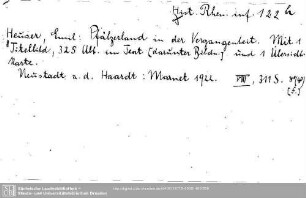 Hist. Rhen. inf. 122 h
Heuser, Emil: Pfälzerland in der Vergangenheit. Mit 1
Titelbild, 325 Abb. im Text [darunter Zeichn.] und 1 Übersichts-
karte.
Neustadt a. d. Haardt: Marnet 1922. VIII, 311 S. 8°
Sächsische Landesbibliothek -
Staats- und Universitätsbibliothek Dresden